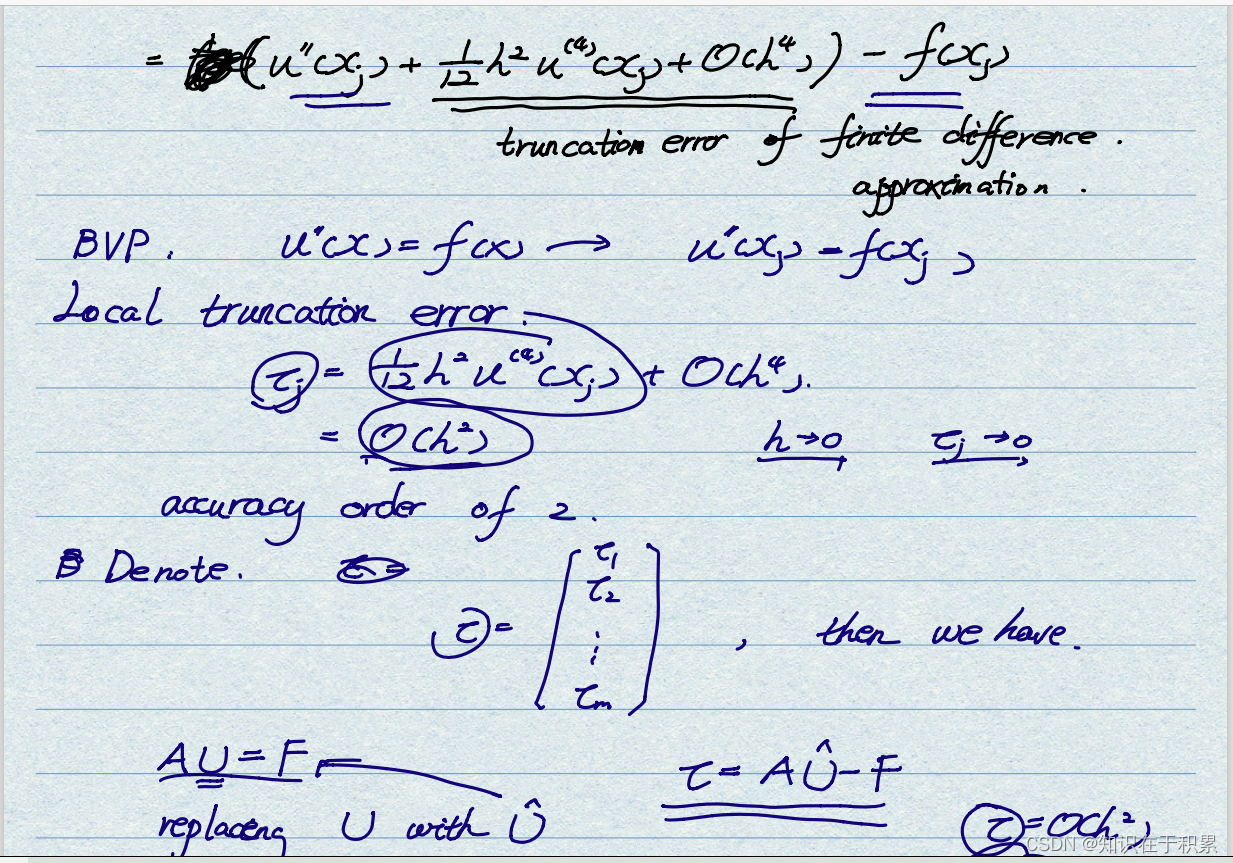 = (u''(xj) + 1/12 h² u⁽⁴⁾(xj) + O(h⁴)) - f(xj)
truncation error of finite difference.
approximation.
BVP. u''(x) = f(x) → u''(xj) = f(xj)
Local truncation error.
τj = 1/12 h² u⁽⁴⁾(xj) + O(h⁴).
= O(h²) h→0 τj→0
accuracy order of 2.
Denote.
τ = [τ1 τ2 ⋮ τm], then we have.
AU = F τ = AÛ - F
replacing U with Û τ = O(h²)
CSDN @知识在于积累